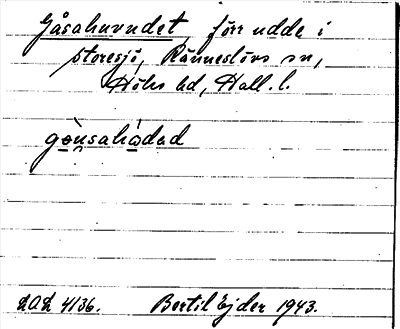 Gåsahuvudet, förr udde i
Storesjö, Ränneslövs sn,
Höks hd, Hall. l.
LAL 4136. Bertil Ejder 1943.